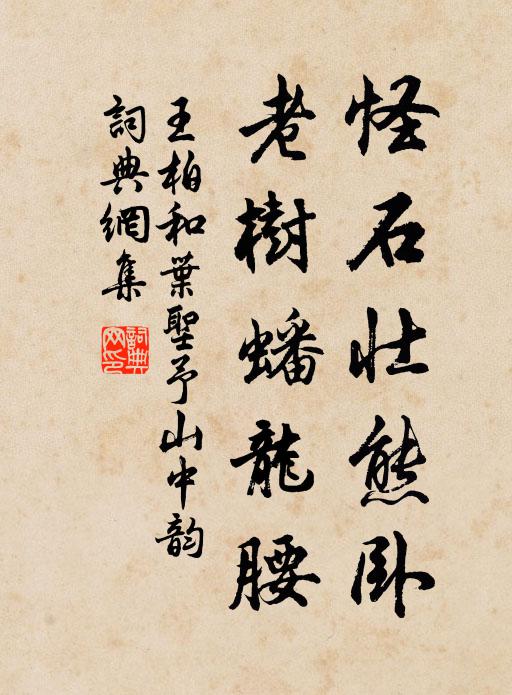 怪石壮熊卧
老樹蟠龍腰
王柏和葉聖予山中韵
詞典網集
詞典网印